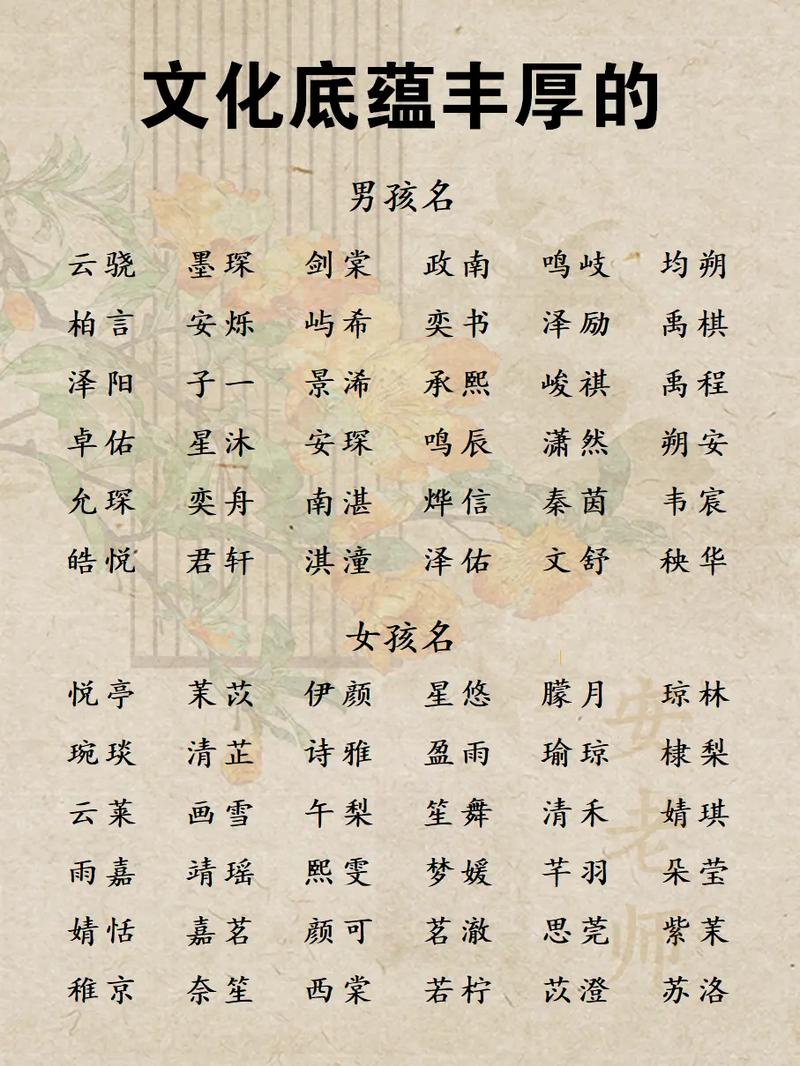 文化底蕴丰厚的
男孩名
云骁 墨琛 剑棠 政南 鸣岐 均朔
柏言 安烁 屿希 奕书 泽励 禹棋
泽阳 子一 景浠 承熙 峻祺 禹程
卓佑 星沐 安琛 鸣辰 潇然 朔安
允琛 奕舟 南湛 烨信 秦茵 韦宸
皓悦 君轩 淇潼 泽佑 文舒 秧华
女孩名
悦亭 茉苡 伊颜 星悠 朦月 琼林
琬琰 清芷 诗雅 盈雨 瑜琼 棣梨
云莱 画雪 午梨 笙舞 清禾 婧琪
雨嘉 靖瑶 熙雯 梦媛 芊羽 朵莹
婧恬 嘉茗 颜可 茗澈 思莞 紫茉
稚京 奈笙 西棠 若柠 苡澄 苏洛
安老师